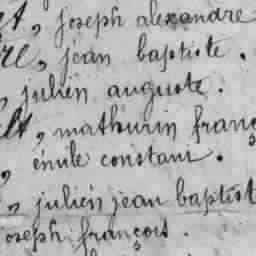 et, joseph alexandre
re, jean baptiste.
, julien auguste.
lt, mathurin franç
, émile constant.
, julien jean baptist
oseph françois.